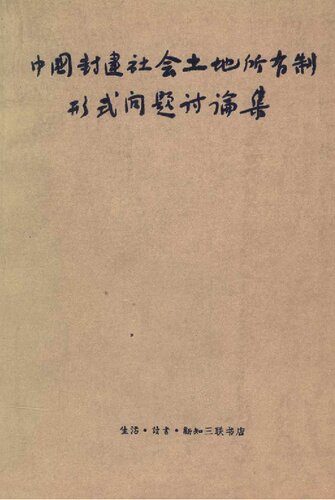 中国封建社会土地所有制
形式问题讨論集
生活·讀书·新知三联书店